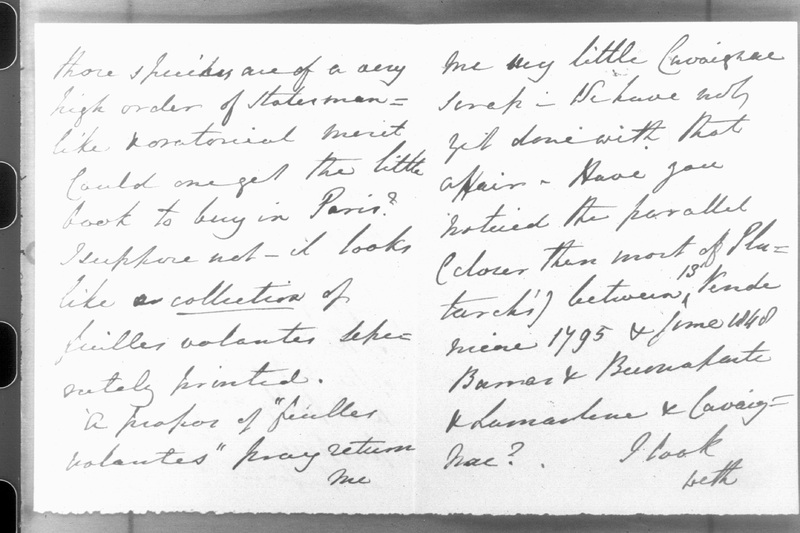 those speeches are of a very
high order of statesman=
like & oratorical merit
Could one get the little
book to buy in Paris?
I suppose not – it looks
like a collection of
feuilles volantes sepe=
rately printed.
A propos of "feuilles
volantes" pray return
me
me my little Cavaignac
scrap – We have not
yet done with that
affair – Have you
noticed the parallel
(closer than most of Plu=
tarch's) between 13th Vende
miere 1795 & June 1848
Barras & Buonaparte
& Lamartine & Cavaig=
nac? . I look
with